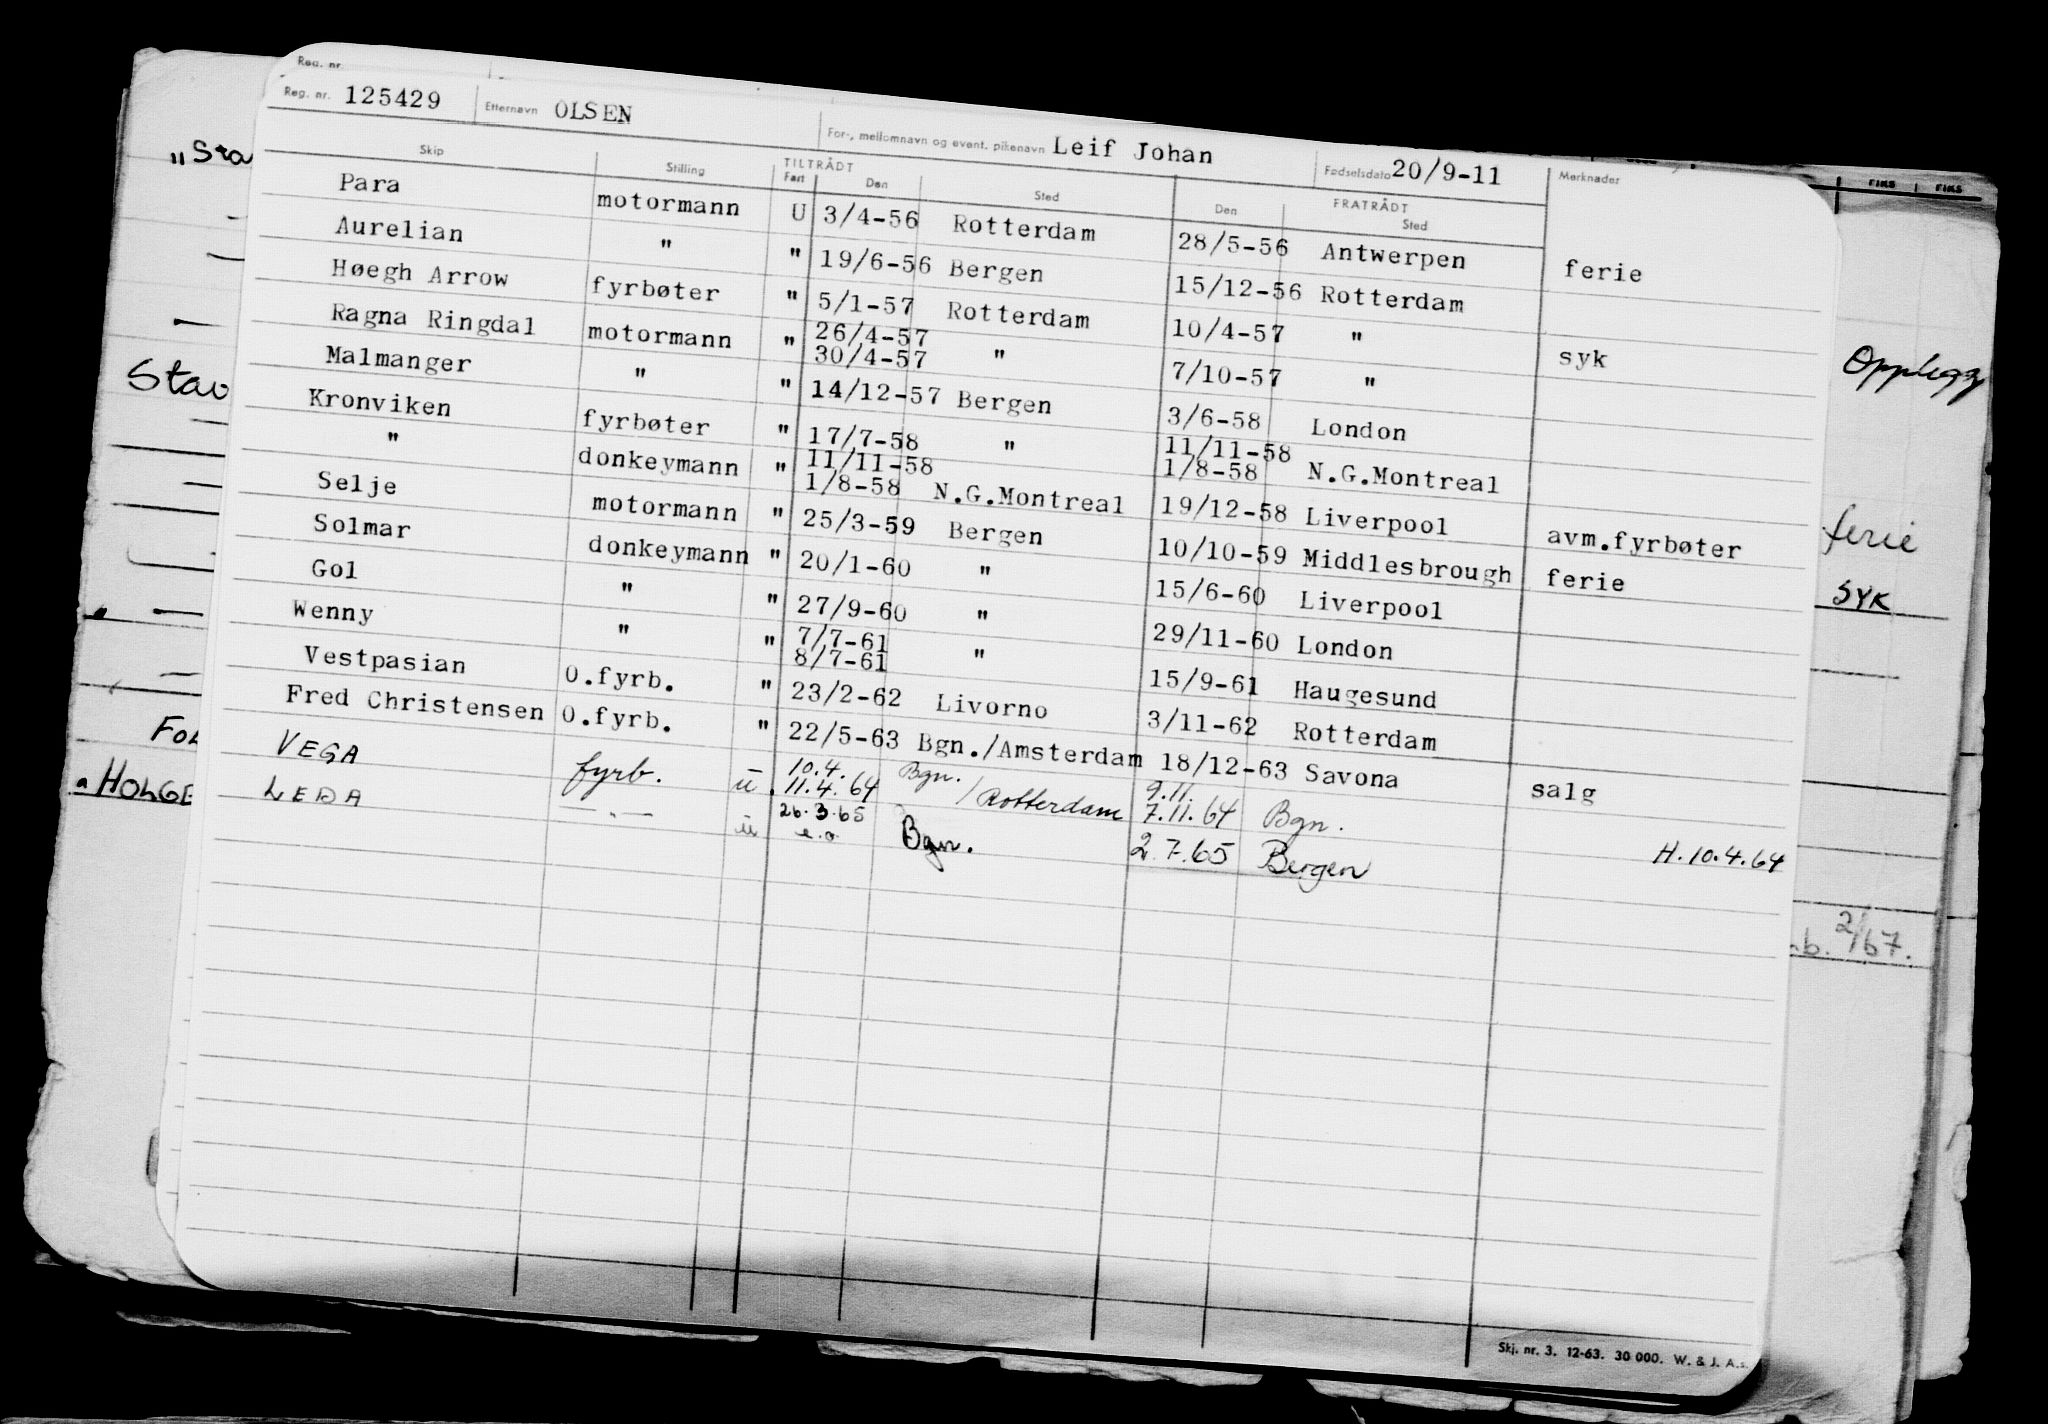 Reg. nr.
Reg. nr. 125429 Etternavn OLSEN For-, mellomnavn og event. pikenavn Leif Johan Fødselsdato 20/9-11 Merknader
Skip Stilling TILTRÅDT Fart Den Sted FRATRÅDT Den Sted
Para motormann U 3/4-56 Rotterdam 28/5-56 Antwerpen ferie
Aurelian " " 19/6-56 Bergen 15/12-56 Rotterdam
Høegh Arrow fyrbøter " 5/1-57 Rotterdam 10/4-57 " syk
Ragna Ringdal motormann " 26/4-57 30/4-57 " 7/10-57 "
Malmanger " " 14/12-57 Bergen 3/6-58 London
Kronviken fyrbøter " 17/7-58 " 11/11-58 1/8-58 N.G.Montreal
" donkeymann " 11/11-58 1/8-58 N.G.Montreal 19/12-58 Liverpool avm.fyrbøter
Selje motormann " 25/3-59 Bergen 10/10-59 Middlesbrough ferie
Solmar donkeymann " 20/1-60 " 15/6-60 Liverpool
Gol " " 27/9-60 " 29/11-60 London
Wenny " " 7/7-61 8/7-61 " 15/9-61 Haugesund
Vestpasian O.fyrb. " 23/2-62 Livorno 3/11-62 Rotterdam
Fred Christensen O.fyrb. " 22/5-63 Bgn./Amsterdam 18/12-63 Savona salg
VEGA fyrb. u 10.4. 11.4.64 Bgn. / Rotterdam 9.11. 7.11.64 Bgn.
LEDA — " — u 26.3.65 e.o Bgn. 2.7.65 Bergen H.10.4.64
Skj. nr. 3. 12-63. 30 000. W. & J. A.s.
"Sta
Stav
FOL
HOLGE
FIKS FIKS
Opplegg
ferie
SYK
2/67.